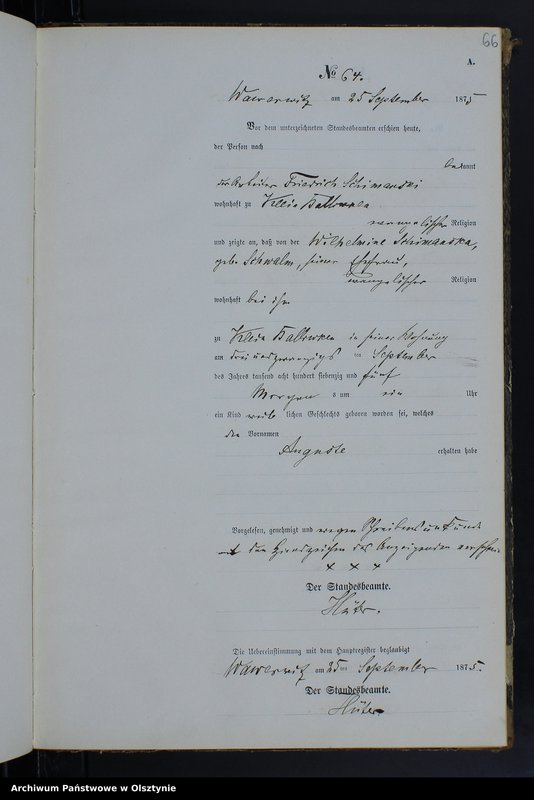 66
A.
No 64.
am 25 September 1875
Vor dem unterzeichneten Standesbeamten erschien heute,
der Person nach
bekannt
der Arbeiter Friedrich Schimanski
wohnhaft zu Klein
evangelischer Religion
und zeigte an, daß von der Wilhelmine Schimanska,
geb. Schwalm, seiner Ehefrau,
evangelischer Religion
wohnhaft bei ihm
zu Klein in seiner Wohnung
am drei und zwanzigsten September
des Jahres tausend acht hundert siebenzig und fünf
Morgens um ein Uhr
ein Kind weiblichen Geschlechts geboren worden sei, welches
den Vornamen
Auguste erhalten habe
Vorgelesen, genehmigt und wegen Schreibensunkunde
mit den Handzeichen des Anzeigenden versehen
x x x
Der Standesbeamte.
Hüter.
Die Uebereinstimmung mit dem Hauptregister beglaubigt
am 25ten September 1875.
Der Standesbeamte.
Hüter
Archiwum Państwowe w Olsztynie